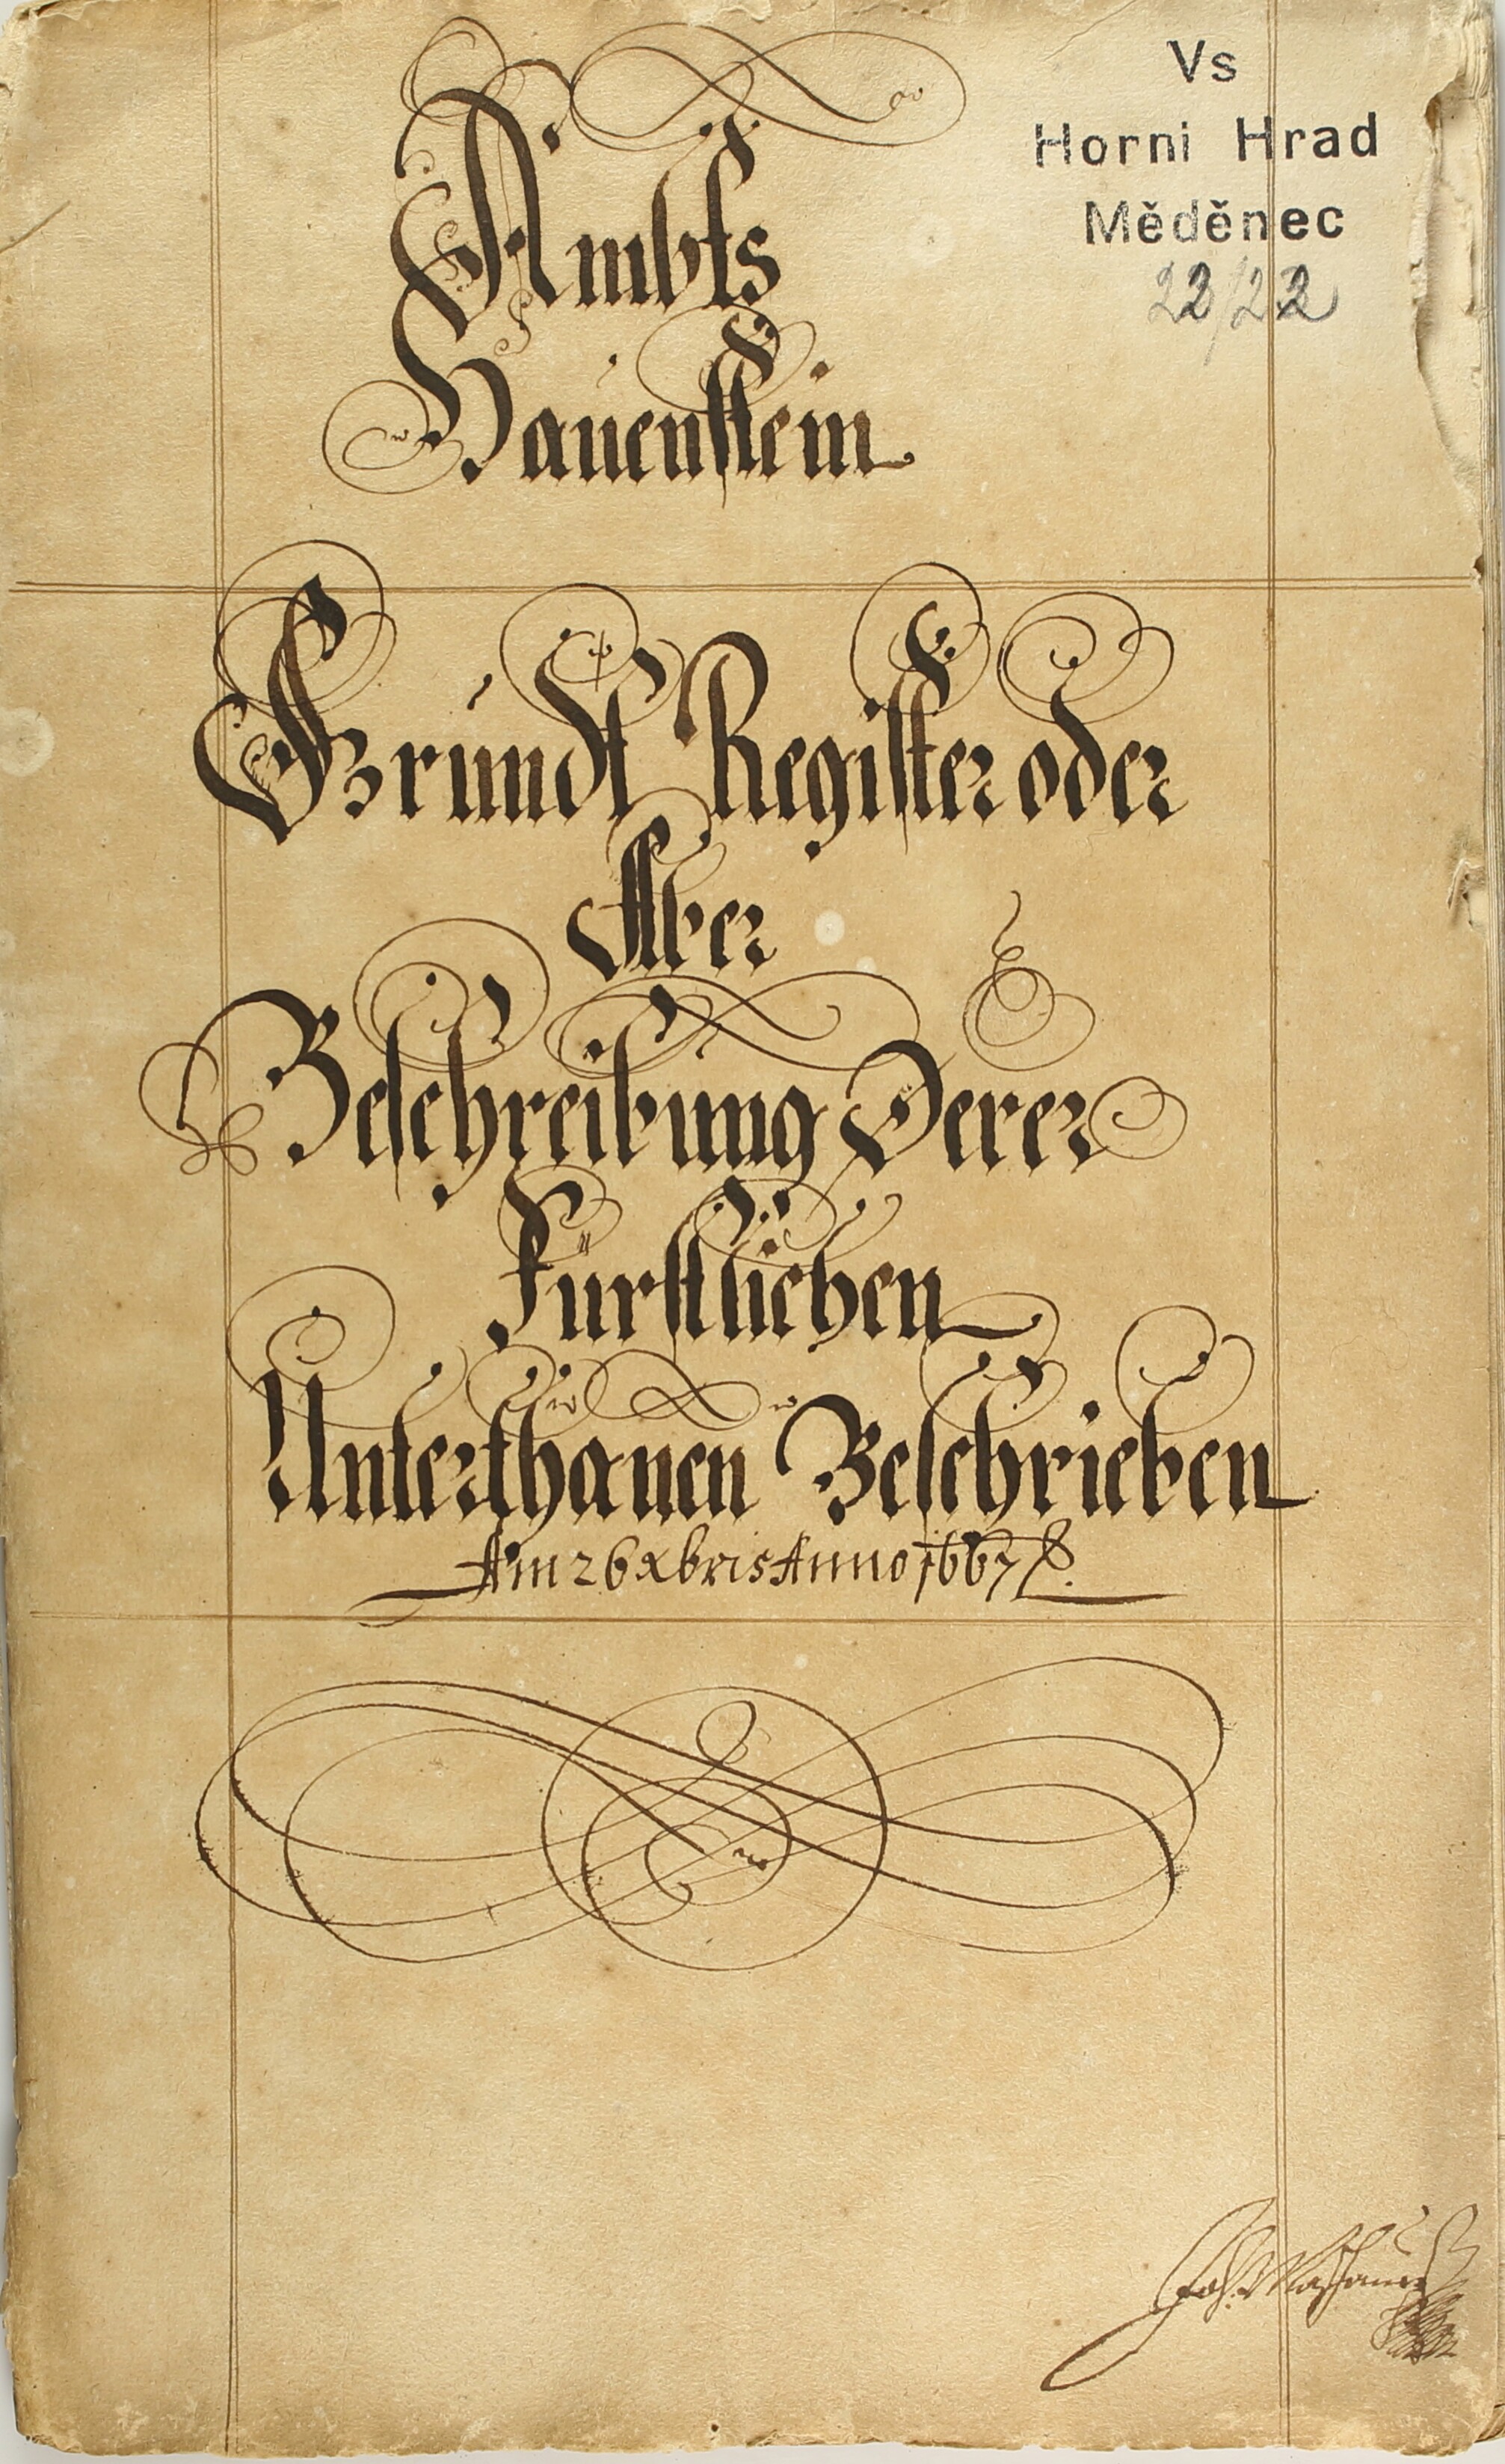 Vs
Horni Hrad
Měděnec
22/22
Ambts
Hauenstein
Grundt Register oder
Aber
Beschreibung Derer
Fürstlichen
Unterthanen Beschrieben
Am 26 xbris Anno 1667
Joh: